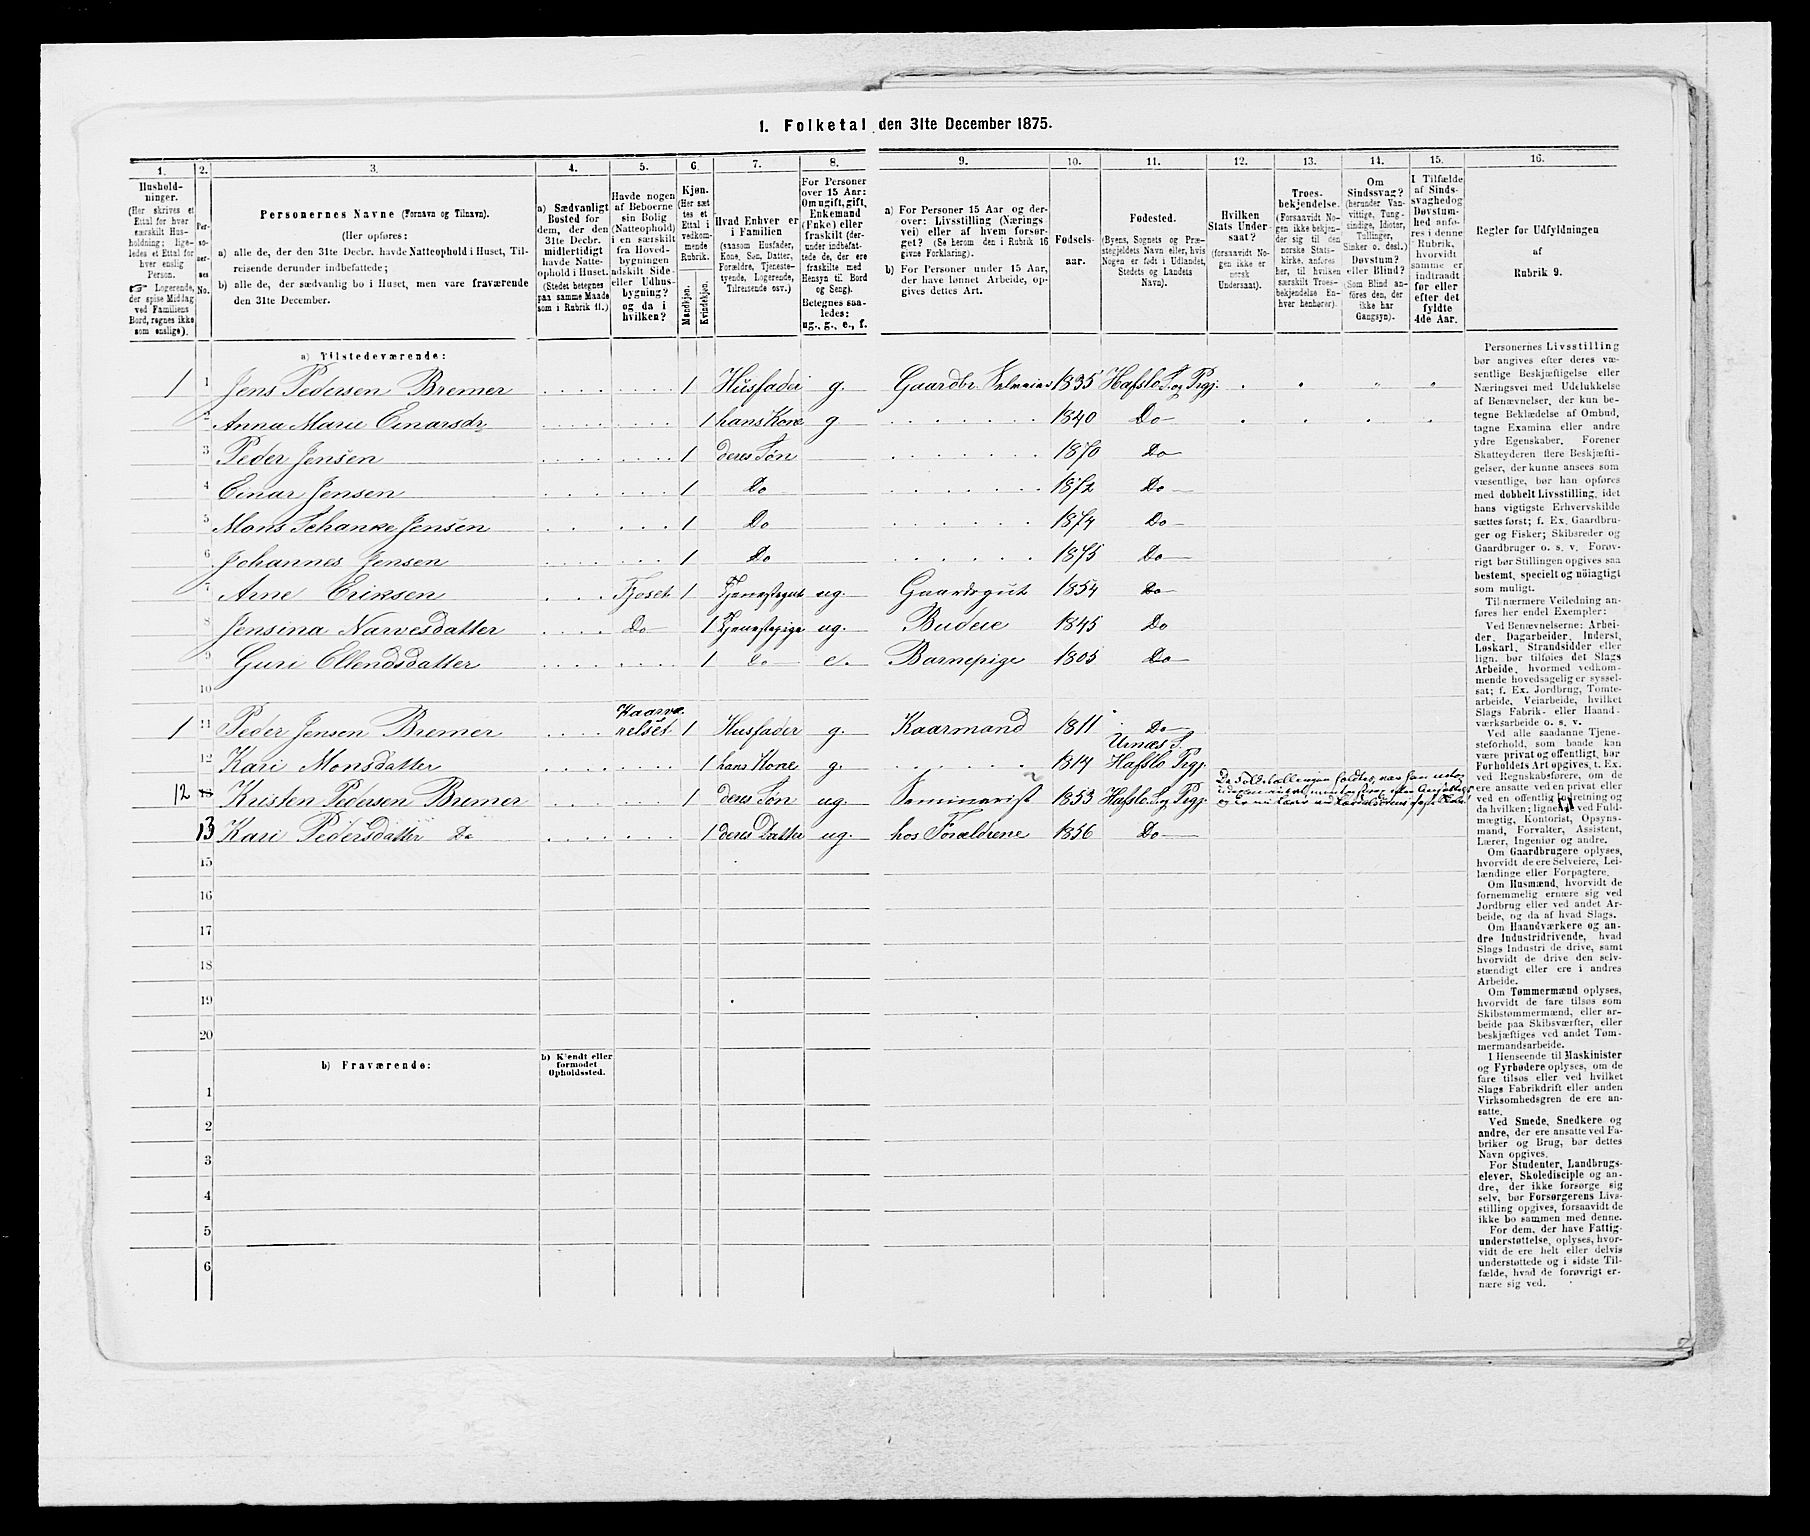 1. Folketal den 31te December 1875.
1. 2. 3. 4. 5. 6. 7. 8. 9. 10. 11. 12. 13. 14. 15. 16.
Hushold-
ninger.
(Her skrives et
Ettal for hver
særskilt Hus-
holdning; lige-
ledes et Ettal for
hver enslig
Person.
☞ Logerende,
der spise Middag
ved Familiens
Bord, regnes ikke
som enslige).
Per-
so-
ner-
nes
No.
Personernes Navne (Fornavn og Tilnavn).
(Her opføres:
a) alle de, der den 31te Decbr. havde Natteophold i Huset, Til-
reisende derunder indbefattede;
b) alle de, der sædvanlig bo i Huset, men vare fraværende
den 31te December.
a) Sædvanligt
Bosted for
dem, der den
31te Decbr.
midlertidigt
havde Natte-
ophold i Huset.
(Stedet betegnes
paa samme Maade
som i Rubrik 11.)
Havde nogen
af Beboerne
sin Bolig
(Natteophold)
i en særskilt
fra Hoved-
bygningen
adskilt Side-
eller Udhus-
bygning?
og da i
hvilken?
Kjøn.
(Her sæt-
tes et
Ettal i
vedkom-
mende
Rubrik.
Mandkjøn.
Kvindekjøn.
Hvad Enhver er
i Familien
(saasom Husfader,
Kone, Søn, Datter,
Forældre, Tjeneste-
tyende, Logerende,
Tilreisende osv.)
For Personer
over 15 Aar:
Om ugift, gift,
Enkemand
(Enke) eller
fraskilt (der-
under indbefat-
tede de, der ere
fraskilte med
Hensyn til Bord
og Seng).
Betegnes saa-
ledes:
ug., g., e., f.
a) For Personer 15 Aar og der-
over: Livsstilling (Nærings-
vei) eller af hvem forsør-
get? (Se herom den i Rubrik 16
givne Forklaring).
b) For Personer under 15 Aar,
der have lønnet Arbeide, op-
gives dettes Art.
Fødsels-
aar.
Fødested.
(Byens, Sognets og Præ-
stegjeldets Navn eller, hvis
Nogen er født i Udlandet,
Stedets og Landets
Navn).
Hvilken
Stats Under-
saat?
(forsaavidt No-
gen ikke er
norsk
Undersaat).
Troes-
bekjendelse.
(Forsaavidt No-
gen ikke bekjen-
der sig til den
norske Stats-
kirke, anføres
her, til hvilken
særskilt Troes-
bekjendelse En-
hver henhører).
Om
Sindssvag?
(herunder Van-
vittige, Tung-
sindige, Idioter,
Tullinger,
Sinker o. desl.)
Døvstum?
eller Blind?
(Som Blind an-
føres den, der
ikke har
Gangsyn).
I Tilfælde
af Sinds-
svaghed og
Døvstum-
hed anfø-
res i denne
Rubrik,
hvorvidt
samme er
indtraadt
før eller
efter det
fyldte
4de Aar.
Regler for Udfyldningen
af
Rubrik 9.
a) Tilstedeværende:
1 1 Jens Pedersen Bremer 1 Husfader g. Gaardbr. Selveier 1835 Hafslo S. og Prgj.
2 Anna Marie Einarsdr 1 hans Kone g 1840 Do
3 Peder Jensen 1 deres Søn 1870 Do
4 Einar Jensen 1 Do 1872 Do
5 Mons Schanke Jensen 1 Do 1874 Do
6 Johannes Jensen 1 Do 1875 Do
7 Arne Eriksen Fjøset 1 Tjenestegut ug. Gaardsgut 1854 Do
8 Jensina Narvesdatter Do 1 Tjenestepige ug. Budeie 1845 Do
9 Guri Ellendsdatter 1 Do e. Barnepige 1805 Do
10
1 11 Peder Jensen Bremer Kaarvæ-
relset 1 Husfader g. Kaarmand 1811 Do
12 Kari Monsdatter 1 hans Kone g. 1814 Urnæs S.
Hafslo Prgj.
12 13 Kristen Pedersen Bremer 1 deres Søn ug. Seminarist 1853 Hafslo S. og Prgj.
13 Kari Pedersdatter Do 1 deres Datter ug. hos Forældrene 1856 Do
15
16
17
18
19
20
b) Fraværende:
b) Kjendt eller
formodet
Opholdssted.
1
2
3
4
5
6
Personernes Livsstilling
bør angives efter deres væ-
sentlige Beskjæftigelse eller
Næringsvei med Udelukkelse
af Benævnelser, der kun be-
tegne Beklædelse af Ombud,
tagne Examina eller andre
ydre Egenskaber. Forener
Skatteyderen flere Beskjæfti-
gelser, der kunne ansees som
væsentlige, bør han opføres
med dobbelt Livsstilling, idet
hans vigtigste Erhvervskilde
sættes først; f. Ex. Gaardbru-
ger og Fisker; Skibsreder og
Gaardbruger o. s. v. Forøv-
rigt bør Stillingen opgives saa
bestemt, specielt og nöiagtigt
som muligt.
Til nærmere Veiledning an-
føres her endel Exempler:
Ved Benævnelserne: Arbei-
der, Dagarbeider, Inderst,
Løskarl, Strandsidder eller
lign. bør tilføies det Slags
Arbeide, hvormed vedkom-
mende hovedsagelig er syssel-
sat; f. Ex. Jordbrug, Tomte-
arbeide, Veiarbeide, hvilket
Slags Fabrik- eller Haand-
værksarbeide o. s. v.
Ved alle saadanne Tjene-
steforhold, som baade kan
være privat og offentligt, bør
Forholdets Art opgives, t. Ex.
ved Regnskabsførere, om de
ere ansatte ved en privat eller
ved en offentlig Indretning og
da hvilken; lignende ved Fuld-
mægtig, Kontorist, Opsyns-
mand, Forvalter, Assistent,
Lærer, Ingeniør og andre.
Om Gaardbrugere oplyses,
hvorvidt de ere Selveiere, Lei-
lændinge eller Forpagtere.
Om Husmænd, hvorvidt de
fornemmelig ernære sig ved
Jordbrug eller ved andet Ar-
beide, og da af hvad Slags.
Om Haandværkere og an-
dre Industridrivende, hvad
Slags Industri de drive, samt
hvorvidt de drive den selv-
stændigt eller ere i andres
Arbeide.
Om Tømmermænd oplyses,
hvorvidt de fare tilsøs som
Skibstømmermænd, eller ar-
beide paa Skibsværfter, eller
beskjæftiges ved andet Tøm-
mermandsarbeide.
I Henseende til Maskinister
og Fyrbødere oplyses, om de
fare tilsøs eller ved hvilket
Slags Fabrikdrift eller anden
Virksomhedsgren de ere an-
satte.
Ved Smede, Snedkere og
andre, der ere ansatte ved Fa-
briker og Brug, bør dettes
Navn opgives.
For Studenter, Landbrugs-
elever, Skoledisciple og an-
dre, der ikke forsørge sig
selv, bør Forsørgerens Livs-
stilling opgives, forsaavidt de
ikke bo sammen med denne.
For dem, der have Fattig-
understøttelse, oplyses, hvor-
vidt de ere helt eller delvis
understøttede og i sidste Til-
fælde, hvad de forøvrigt er-
nære sig ved.